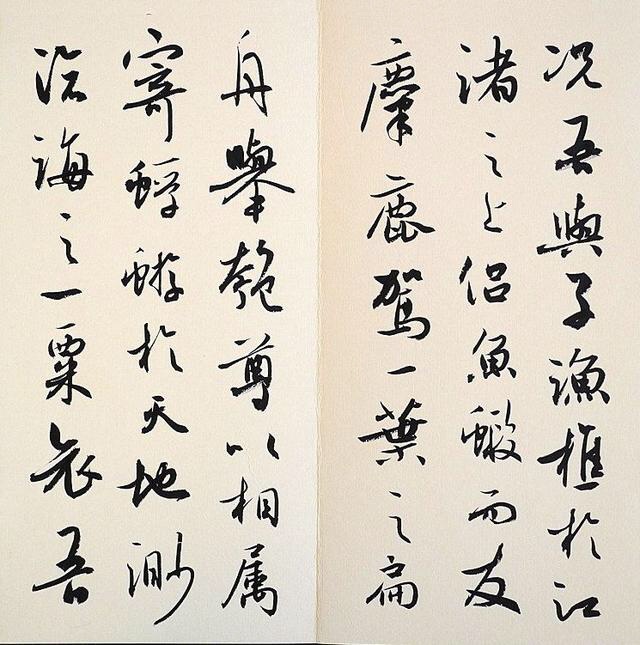 况吾與子漁樵於江
渚之上侣魚蝦而友
麋鹿駕一葉之扁
舟舉匏尊以相属
寄蜉蝣於天地渺
滄海之一粟哀吾